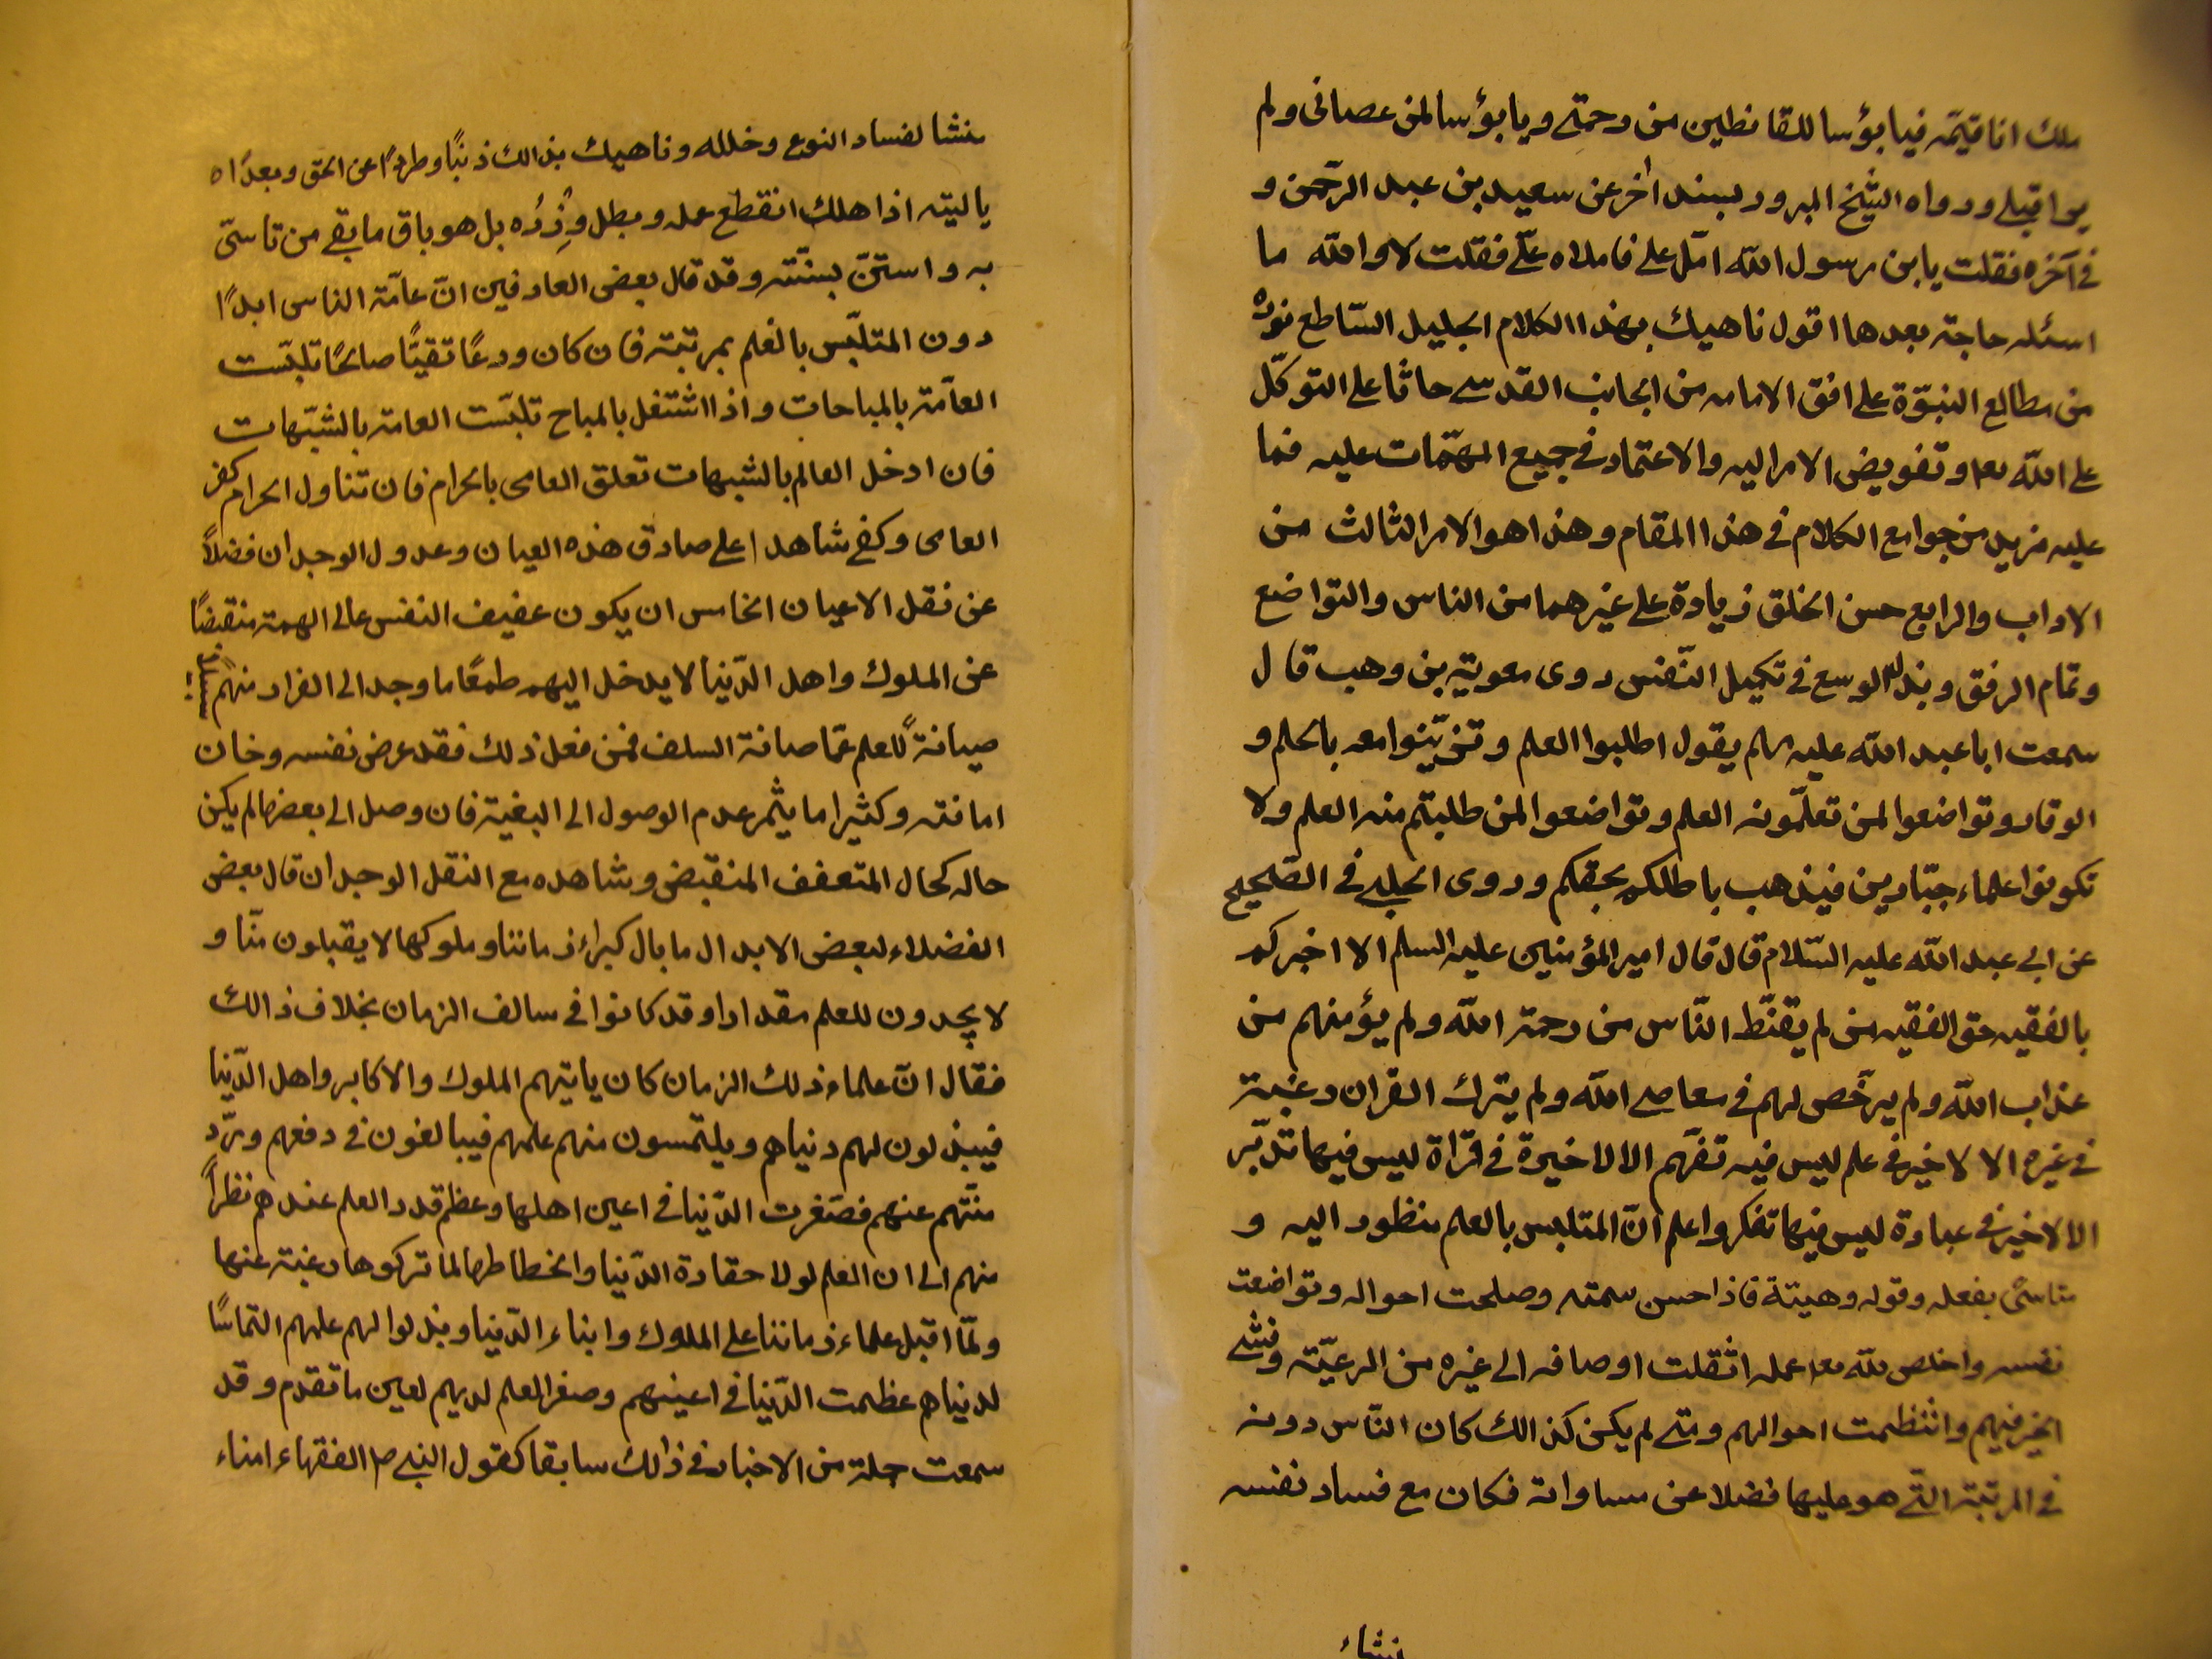 ملك انا قيّمه فيا بؤسا للقانطين من رحمتي ويا بؤسا لمن عصاني ولم
يراقبني ورواه الشيخ المبرور بسند اٰخر عن سعيد بن عبد الرّحمن و
في آخره فقلت يابن رسول اللّه امّل علي فاملاه علّي فقلت لا واللّه ما
اسئله حاجة بعدها اقول ناهيك بهذا الكلام الجليل السّاطع نوره
من مطالع النبّوة على افق الامامه من الجانب القدسي حاثا على التوكّل
على اللّه تعا وتفويض الامر اليه والاعتماد في جميع المهمّات عليه فما
عليه مزيد من جوامع الكلام في هذا المقام وهذا هو الامر الثالث من
الاداب والرابع حسن الخلق زيادة على غيرهما من الناس والتواضع
وتمام الرفق وبذل الوسع في تكميل النّفس روى معوية بن وهب قال
سمعت ابا عبد اللّه عليه سلم يقول اطلبوا العلم وتزيّنوا معه بالحلم و
الوقار وتواضعوا لمن تعلّمونه العلم وتواضعوا لمن طلبتم منه العلم ولا
تكونوا علماء جبّارين فيذهب باطلكم بحقكم وروى الحلبي في الصّحيح
عن ابي عبد اللّه عليه السّلام قال قال امير المؤمنين عليه السلم الا اخبركم
بالفقيه حق الفقيه من لم يقنّط النّاس من رحمة اللّه ولم يؤمنهم من
عذاب اللّه ولم يرخّص لهم في معاصي اللّه ولم يترك القران رغبة
في غيره الا لا خير في علم ليس فيه تفهّم الا لا خيرة في قرّاة ليس فيها تدبّر
الا لا خير في عبادة ليس فيها تفكر واعلم انّ المتلبس بالعلم منظور اليه و
متاسّى بفعله وقوله وهيئة فاذا حسن سمته وصلحت احواله وتواضعت
نفسه واخلص للّه تعا عمله انتقلت اوصافه الى غيره من الرعيّة وفشى
الخير فيهم وانتظمت احوالهم ومتى لم يكن كذالك كان النّاس دونه
في المرتبة التّي هو عليها فضلا عن مساواته فكان مع فساد نفسه
منشاء
منشا لفساد النوع وخلله وناهيك بذالك ذنبًا وطردًا عن الحق وبعدًاه
يا ليته اذا هلك انقطع عمله وبطل وِزرُه بل هو باق ما بقي من تاسّى
به واستنّ بسنّته وقد قال بعض العارفين انّ عامّة الناس ابدًا
دون المتلبّس بالعلم بمرتبة فان كان ورعًا تقيًّا صالحًا تلبّست
العامّة بالمباحات واذا اشتغل بالمباح تلبّست العامة بالشبّهات
فان ادخل العالم بالشبهات تعلق العامى بالحرام فان تناول الحرام كفر
العامى وكفى شاهدا على صادق هذه العيان وعدول الوجدان فضلاً
عن نقل الاعيان الخامس ان يكون عفيف النفس عالى الهمة منقبضًا
عن الملوك واهل الدّنيا لا يدخل اليهم طمعًا ما وجد الى الفرار منهم سبيلا
صيانةً للعلم عمّا صانة السلف فمن فعل ذلك فقد عرض نفسه وخان
امانته وكثيرا ما يثمر عدم الوصول الى البغية فان وصل الى بعضها لم يكن
حاله كحال المتعفف المنقبض وشاهده مع النقل الوجدان قال بعض
الفضلاء لبعض الابدال ما بال كبراء زماننا وملوكها لا يقبلون منّا و
لا يجدون للعلم مقدارا وقد كانوا في سالف الزمان بخلاف ذالك
فقال انّ علماء ذلك الزمان كان ياتيهم الملوك والاكابر واهل الدّنيا
فيبذلون لهم دنياهم ويلتمسون منهم علمهم فيبالغون في دفعهم وردّ
منّتهم عنهم فصّغرت الدّنيا في اعين اهلها وعظم قدر العلم عندهم نظراً
منهم الى ان العلم لولا حقارة الدّنيا وانحطاطها لما تركوها رغبة عنها
ولمّا اقبل علماء زماننا على الملوك وابناء الدّنيا وبذلوا لهم علمهم التماسًا
لدنياهم عظمت الدّنيا في اعينهم وصغر العلم لديهم لعين ما تقدم وقد
سمعت جملة من الاخبار في ذالك سابقا كقول النبي ص الفقهاء امناء